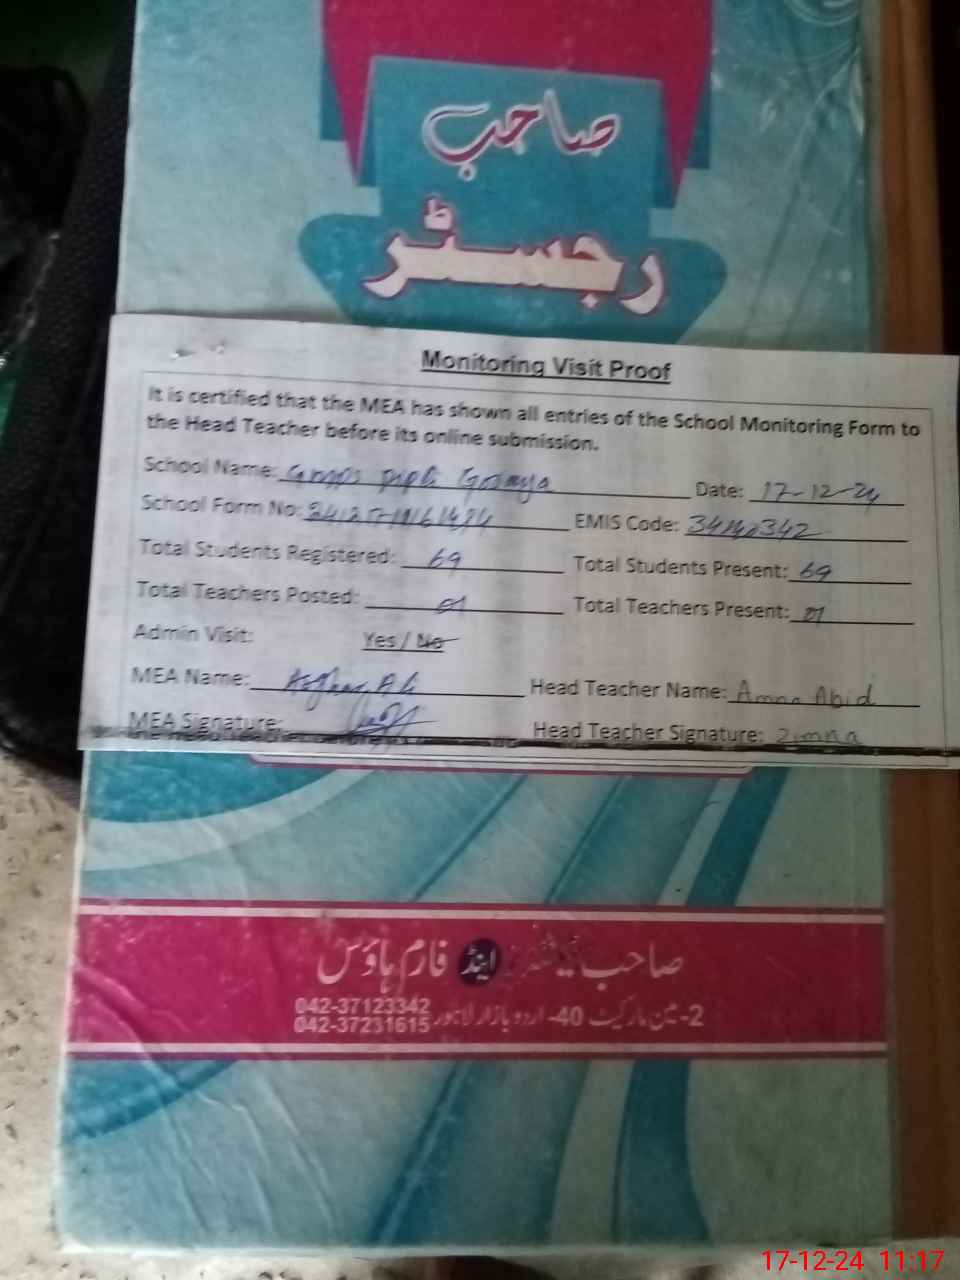 صاحب
رجسٹر
Monitoring Visit Proof
It is certified that the MEA has shown all entries of the School Monitoring Form to
the Head Teacher before its online submission.
School Name: Date: 17-12-24
School Form No: EMIS Code:
Total Students Registered: 69 Total Students Present: 69
Total Teachers Posted: 01 Total Teachers Present: 01
Admin Visit: Yes / No
MEA Name: Head Teacher Name: Amna Abid
MEA Signature: Head Teacher Signature:
صاحب اینڈ فارم ہاؤس
2-مین مارکیٹ 40- اردو بازار لاہور 042-37123342
042-37231615
17-12-24 11:17